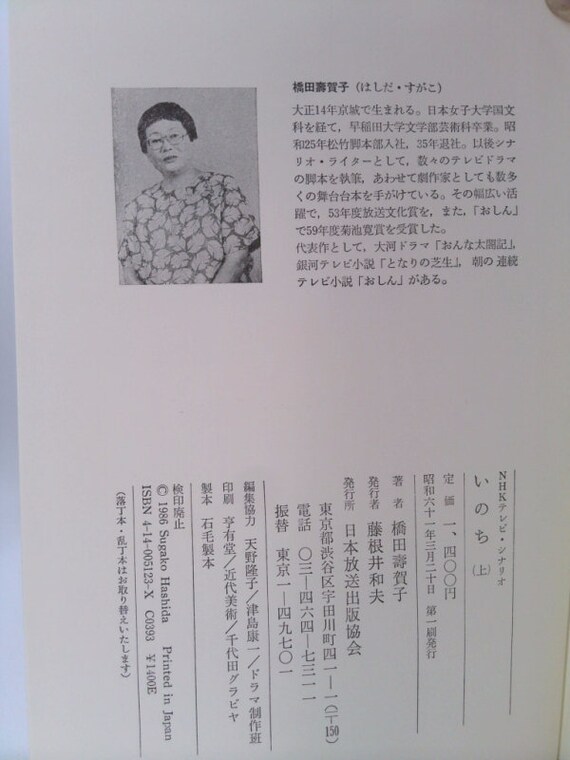 橋田壽賀子(はしだ・すがこ)
大正14年京城で生まれる。日本女子大学国文
科を経て，早稲田大学文学部芸術科卒業。昭
和25年松竹脚本部入社，35年退社。以後シナ
リオ・ライターとして，数々のテレビドラマ
の脚本を執筆，あわせて劇作家としても数多
くの舞台台本を手がけている。その幅広い活
躍で，53年度放送文化賞を，また，「おしん」
で59年度菊池寛賞を受賞した。
代表作として，大河ドラマ「おんな太閤記」，
銀河テレビ小説「となりの芝生」，朝の連続
テレビ小説「おしん」がある。
NHKテレビ・シナリオ
いのち(上)
定価 一、四〇〇円
昭和六十一年三月二十日 第一刷発行
著者 橋田壽賀子
発行者 藤根井和夫
発行所 日本放送出版協会
東京都渋谷区宇田川町四一―一(〒150)
電話 〇三―四六四―七三一一
振替 東京一―四九七〇一
編集協力 天野隆子／津島康一／ドラマ制作班
印刷 亨有堂／近代美術／千代田グラビヤ
製本 石毛製本
検印廃止
© 1986 Sugako Hashida Printed in Japan
ISBN 4-14-005123-X C0393 ¥1400E
(落丁本・乱丁本はお取り替えいたします)